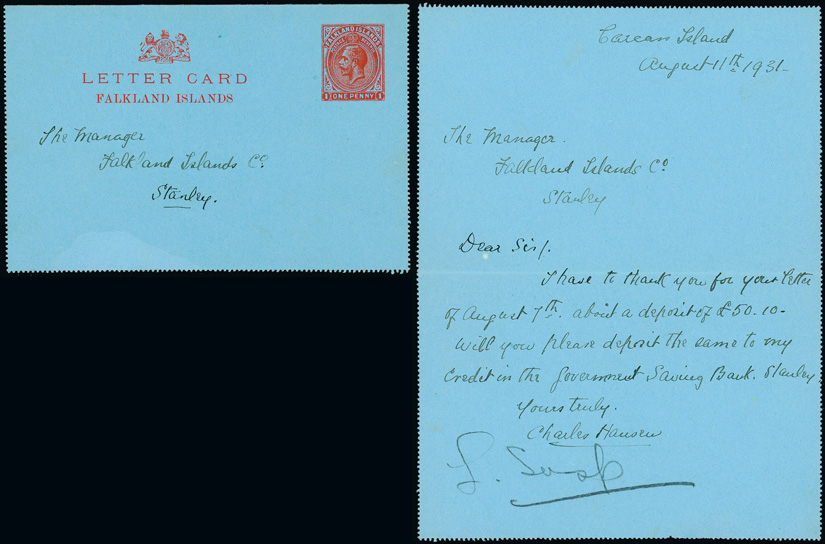 LETTER CARD
FALKLAND ISLANDS
FALKLAND ISLANDS
1 ONE PENNY 1
The Manager
Falkland Islands Co
Stanley.
Carcass Island
August 11th 1931-
The Manager.
Falkland Islands Co
Stanley
Dear Sir/.
I have to thank you for your letter
of August 7th. about a deposit of £50-10-
will you please deposit the same to my
Credit in the Government Saving Bank. Stanley
Yours truly.
Charles Hansen